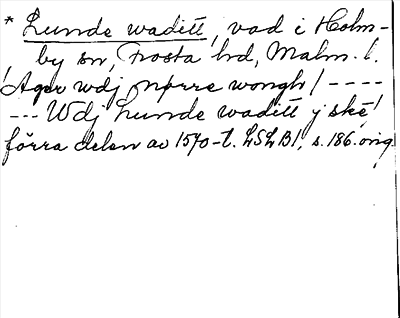 * Lunde waditt, vad i Holm-
by sn, Frosta hd, Malm. l.
! Ager wdj nørre wongh / ----
--- Wdj Lunde waditt j ske!
förra delen av 1570-t. LSLB1, s. 186. orig.